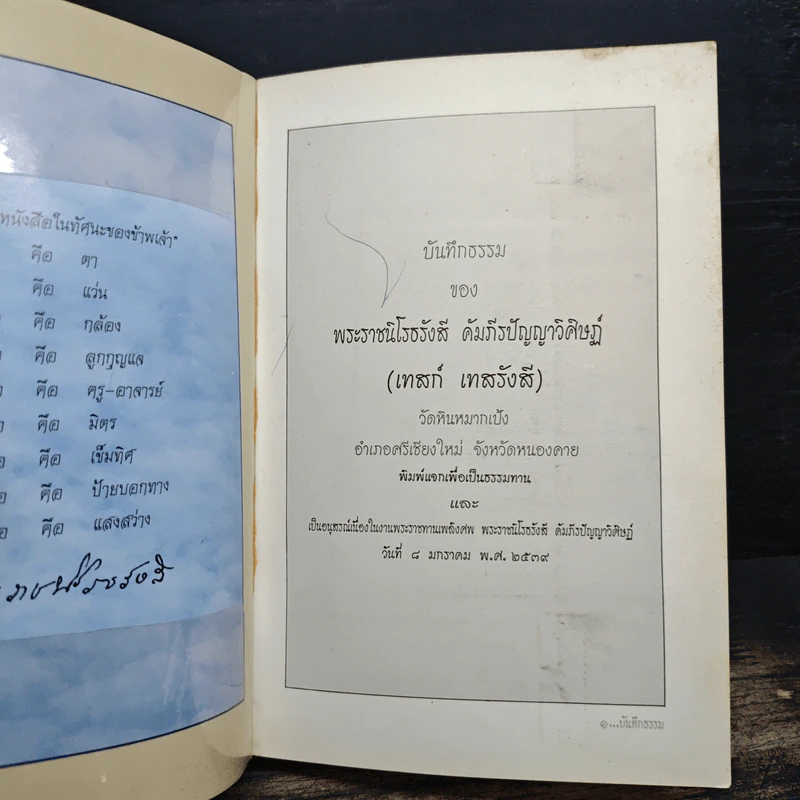 หนังสือในทัศนะของข้าพเจ้า"
คือ ตา
คือ แว่น
คือ กล้อง
คือ ลูกกุญแจ
คือ ครู-อาจารย์
คือ มิตร
คือ เข็มทิศ
คือ ป้ายบอกทาง
คือ แสงสว่าง
บันทึกธรรม
ของ
พระราชนิโรธรังสี คัมภีรปัญญาวิศิษฏ์
(เทสก์ เทสรังสี)
วัดหินหมากเป้ง
อำเภอศรีเชียงใหม่ จังหวัดหนองคาย
พิมพ์แจกเพื่อเป็นธรรมทาน
และ
เป็นอนุสรณ์เนื่องในงานพระราชทานเพลิงศพ พระราชนิโรธรังสี คัมภีรปัญญาวิศิษฏ์
วันที่ ๘ มกราคม พ.ศ. ๒๕๓๙
๑...บันทึกธรรม